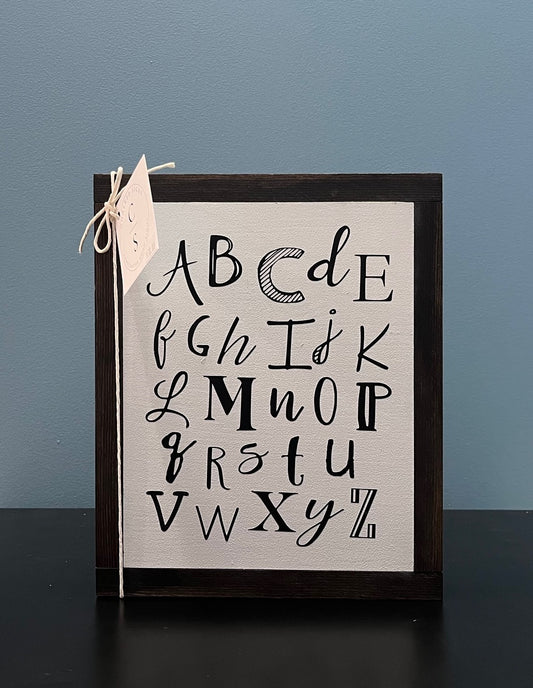 C
S
A B C d E
f G h I j K
L M n O P
q R s t u
V W X y Z